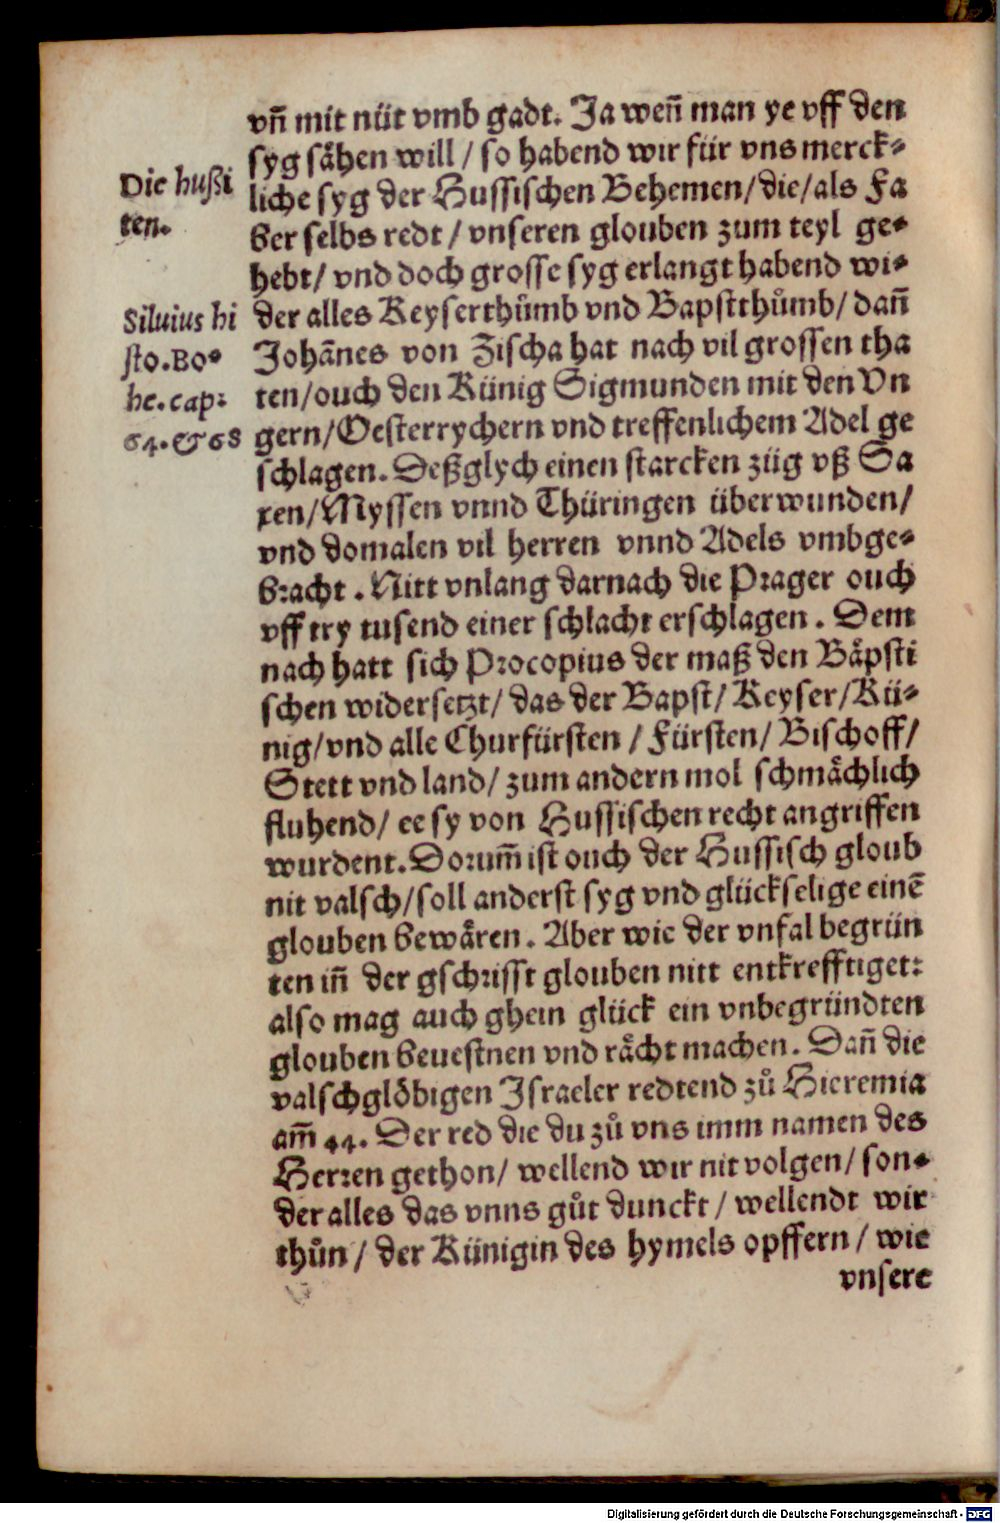 vñ mit nüt vmb gadt. Ja weñ man ye vff den
syg sähen will / so habend wir für vns merck⸗
liche syg der Hussischen Behemen/die/als Fa
ber selbs redt / vnseren glouben zum teyl ge⸗
hebt/ vnd doch grosse syg erlangt habend wi⸗
der alles Keyserthůmb vnd Bapstthůmb/ dañ
Johānes von Zischa hat nach vil grossen tha
ten/ouch den Künig Sigmunden mit den Vn
gern/Oesterrychern vnd treffenlichem Adel ge
schlagen. Deßglych einen starcken züg vß Sa
xen/Myssen vnnd Thüringen überwunden/
vnd domalen vil herren vnnd Adels vmbge⸗
bracht . Nitt vnlang darnach die Prager ouch
vff try tusend einer schlacht erschlagen . Dem
nach hatt sich Procopius der maß den Bäpsti
schen widersetzt/ das der Bapst/ Keyser/Kü⸗
nig/vnd alle Churfürsten / Fürsten/ Bischoff/
Stett vnd land/ zum andern mol schmächlich
fluhend/ ee sy von Hussischen recht angriffen
wurdent. Dorum̃ ist ouch der Hussisch gloub
nit valsch/soll anderst syg vnd glückselige einē
glouben bewären . Aber wie der vnfal begrün
ten iñ der gschrifft glouben nitt entkrefftiget:
also mag auch ghein glück ein vnbegründten
glouben beuestnen vnd rächt machen . Dañ die
valschglöbigen Israeler redtend zů Hieremia
am̃ 44. Der red die du zů vns imm namen des
Herren gethon/ wellend wir nit volgen/ son⸗
der alles das vnns gůt dunckt / wellendt wir
thůn / der Künigin des hymels opffern / wie
vnsere
Die hußi
ten.
Siluius hi
sto.Bo⸗
he.cap:
64.&68
Digitalisierung gefördert durch die Deutsche Forschungsgemeinschaft - DFG